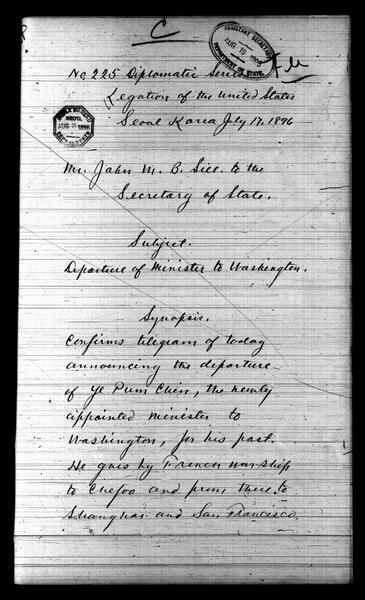 C
ASSISTANT SECRETARY
AUG 19 1896
DEPARTMENT OF STATE
No 225 Diplomatic Series
Legation of the United States
Seoul Korea July 17. 1896
AUG 1896
Mr. John M. B. Sill. to the
Secretary of State.
Subject.
Departure of Minister to Washington.
Synopsis.
Confirms telegram of today
announcing the departure
of Ye Pum Chin, the newly
appointed minister to
Washington, for his post.
He goes by French war-ship
to Chefoo and from there to
Shanghai and San Francisco.